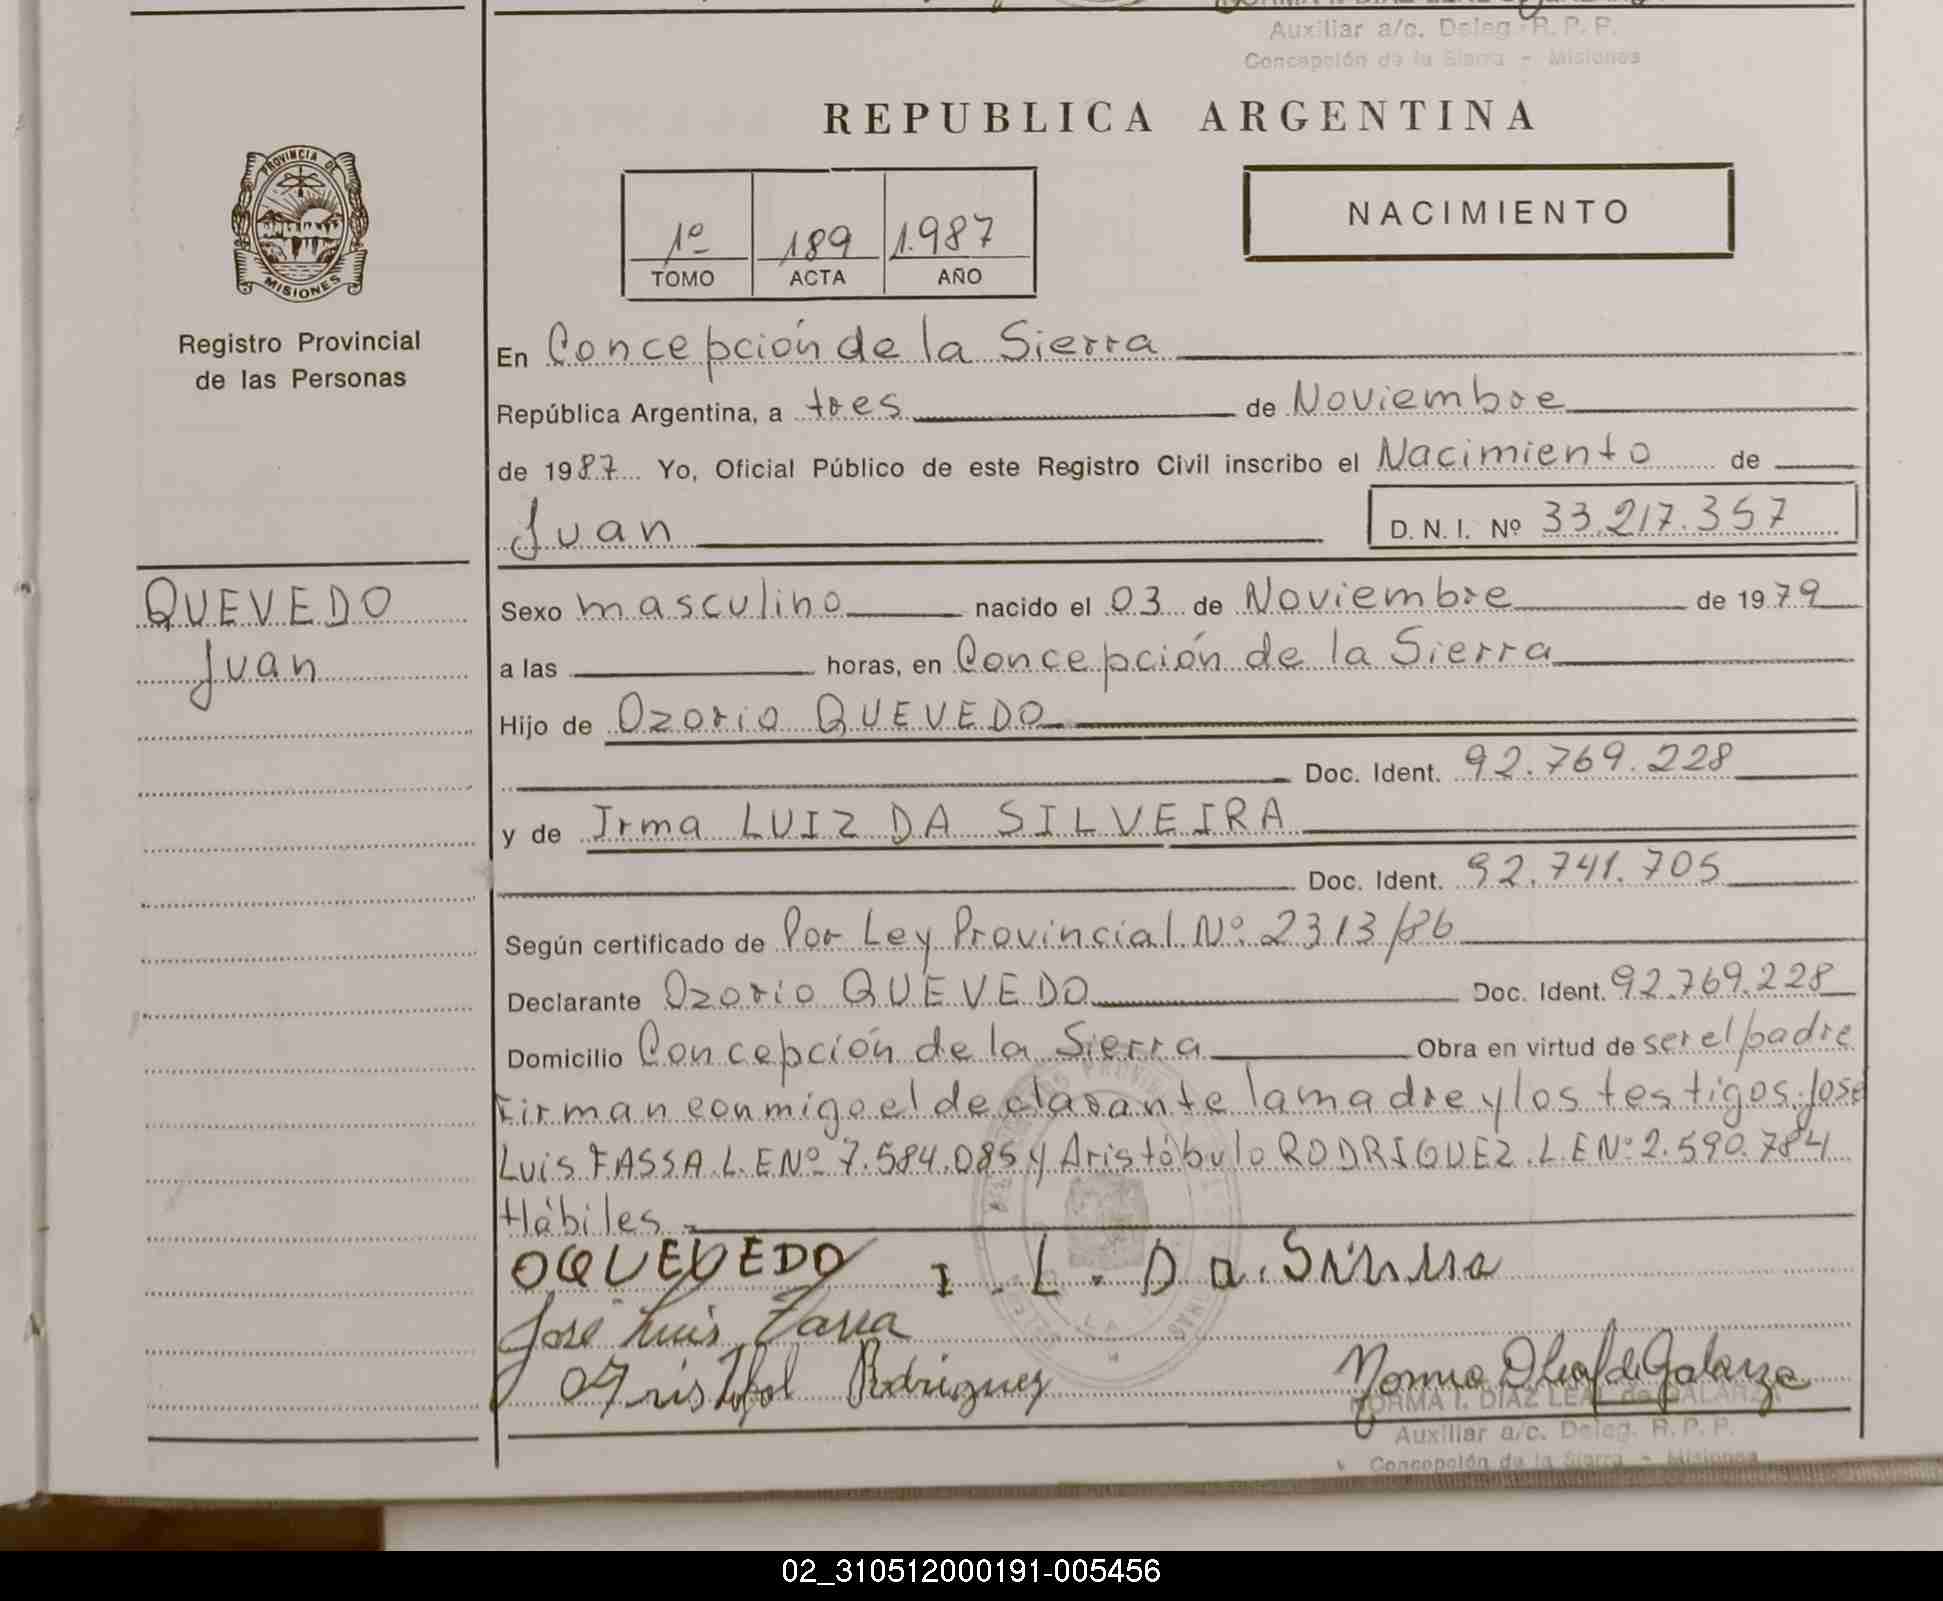 Auxiliar a/c. Deleg. R. P. P.
Concepción de la Sierra - Misiones
REPUBLICA ARGENTINA
PROVINCIA DE
MISIONES
Registro Provincial
de las Personas
NACIMIENTO
1º 189 1.987
TOMO ACTA AÑO
En Concepción de la Sierra
República Argentina, a tres de Noviembre
de 1987 Yo, Oficial Público de este Registro Civil inscribo el Nacimiento de
Juan D. N. I. Nº 33.217.357
QUEVEDO
Juan
Sexo masculino nacido el 03 de Noviembre de 1979
a las horas, en Concepción de la Sierra
Hijo de Ozorio QUEVEDO
Doc. Ident. 92.769.228
y de Irma LUIZ DA SILVEIRA
Doc. Ident. 92.741.705
Según certificado de Por Ley Provincial Nº 2313/86
Declarante Ozorio QUEVEDO Doc. Ident. 92.769.228
Domicilio Concepción de la Sierra Obra en virtud de ser el padre
Firman conmigo el declarante la madre y los testigos José
Luis FASSA L.E Nº 7.584.085 y Aristóbulo RODRIGUEZ L.E Nº 2.590.784
Hábiles.
OQUEVEDO I. L. Da. Silveira
José Luis Fassa
Aristobol Rodriguez
NORMA I. DIAZ LEAL de GALARZA
Auxiliar a/c. Deleg. R. P. P.
Concepción de la Sierra - Misiones
02_310512000191-005456